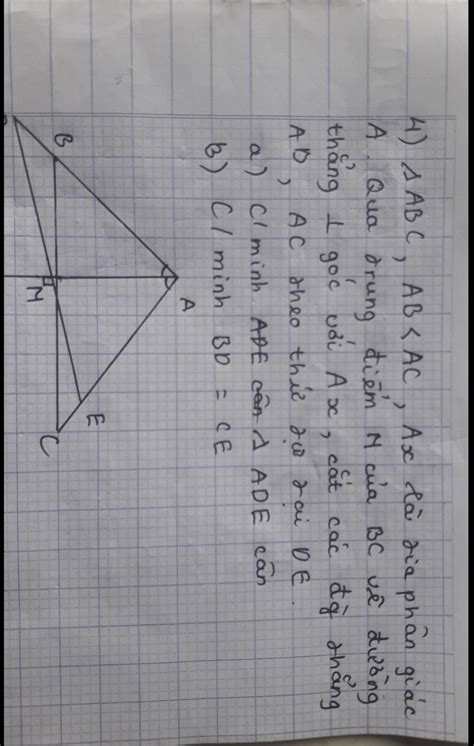 4) Δ ABC, AB < AC, Ax là tia phân giác
A. Qua trung điểm M của BC vẽ đường
thẳng ⊥ góc với Ax, cắt các đg thẳng
AB, AC theo thứ tự tại DE.
a) C/minh ADE cân Δ ADE cân
b) C/minh BD = CE
A
B
M
E
C